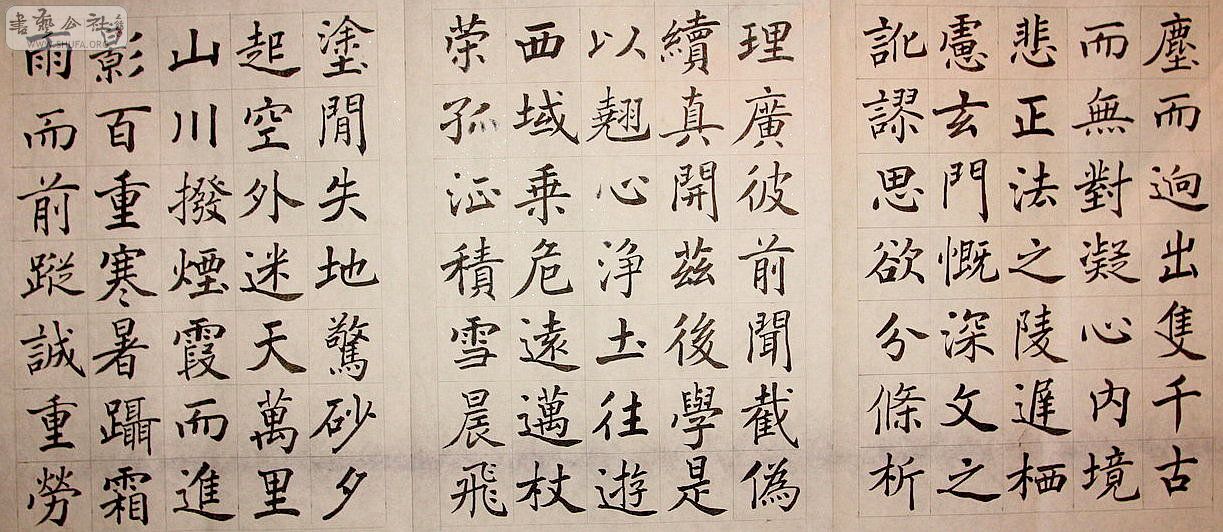 塵而迥出隻千古
而無對凝心內境
悲正法之陵遲栖
慮玄門慨深文之
訛謬思欲分條析
理廣彼前聞截偽
續真開茲後學是
以翹心淨土往遊
西域乗危遠邁杖
策孤征積雪晨飛
塗閒失地驚砂夕
起空外迷天萬里
山川撥煙霞而進
影百重寒暑躡霜
雨而前蹤誠重勞
書藝公社
WWW.SHUFA.ORG